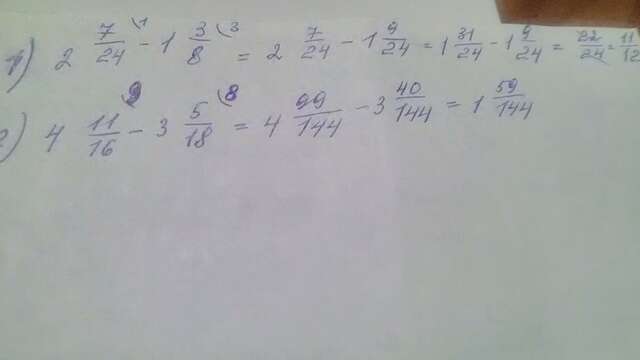 1) 2 7/24 \1 - 1 3/8 \3 = 2 7/24 - 1 9/24 = 1 31/24 - 1 9/24 = 22/24 = 11/12
2) 4 11/16 \9 - 3 5/18 \8 = 4 99/144 - 3 40/144 = 1 59/144